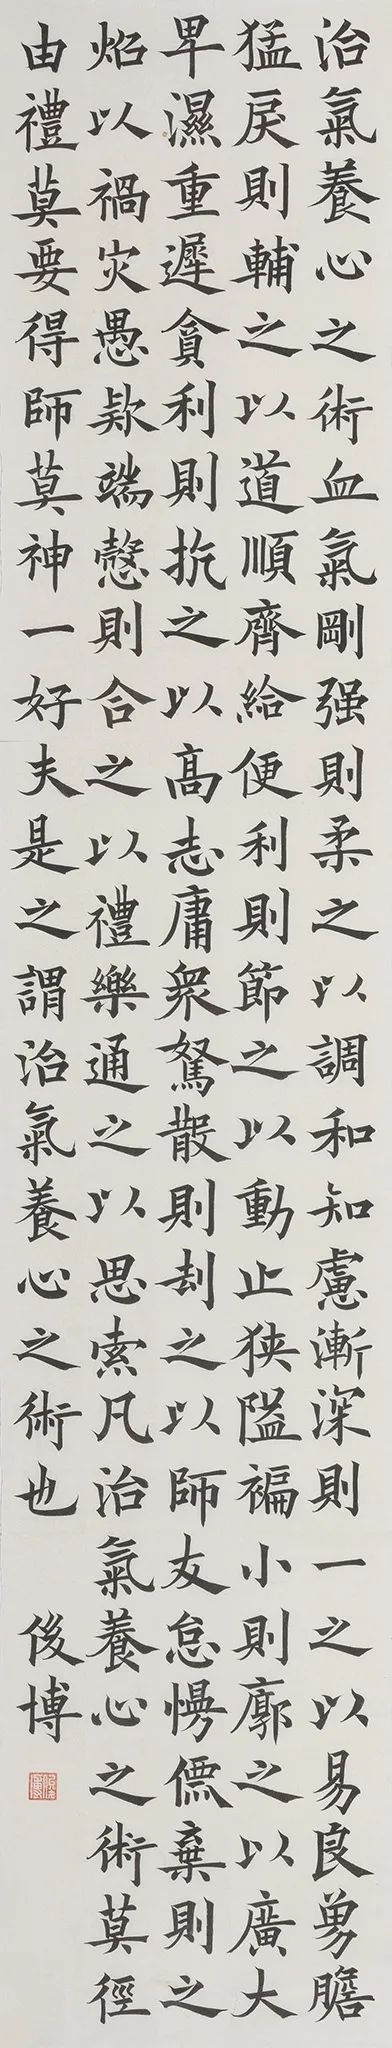 治氣養心之術血氣剛强則柔之以調和知慮漸深則一之以易良勇膽
猛戾則輔之以道順齊給便利則節之以動止狹隘褊小則廓之以廣大
卑濕重遲貪利則抗之以高志庸衆駑散則刦之以師友怠慢僄棄則之
炤以禍灾愚款端愨則合之以禮樂通之以思索凡治氣養心之術莫徑
由禮莫要得師莫神一好夫是之謂治氣養心之術也 俊博